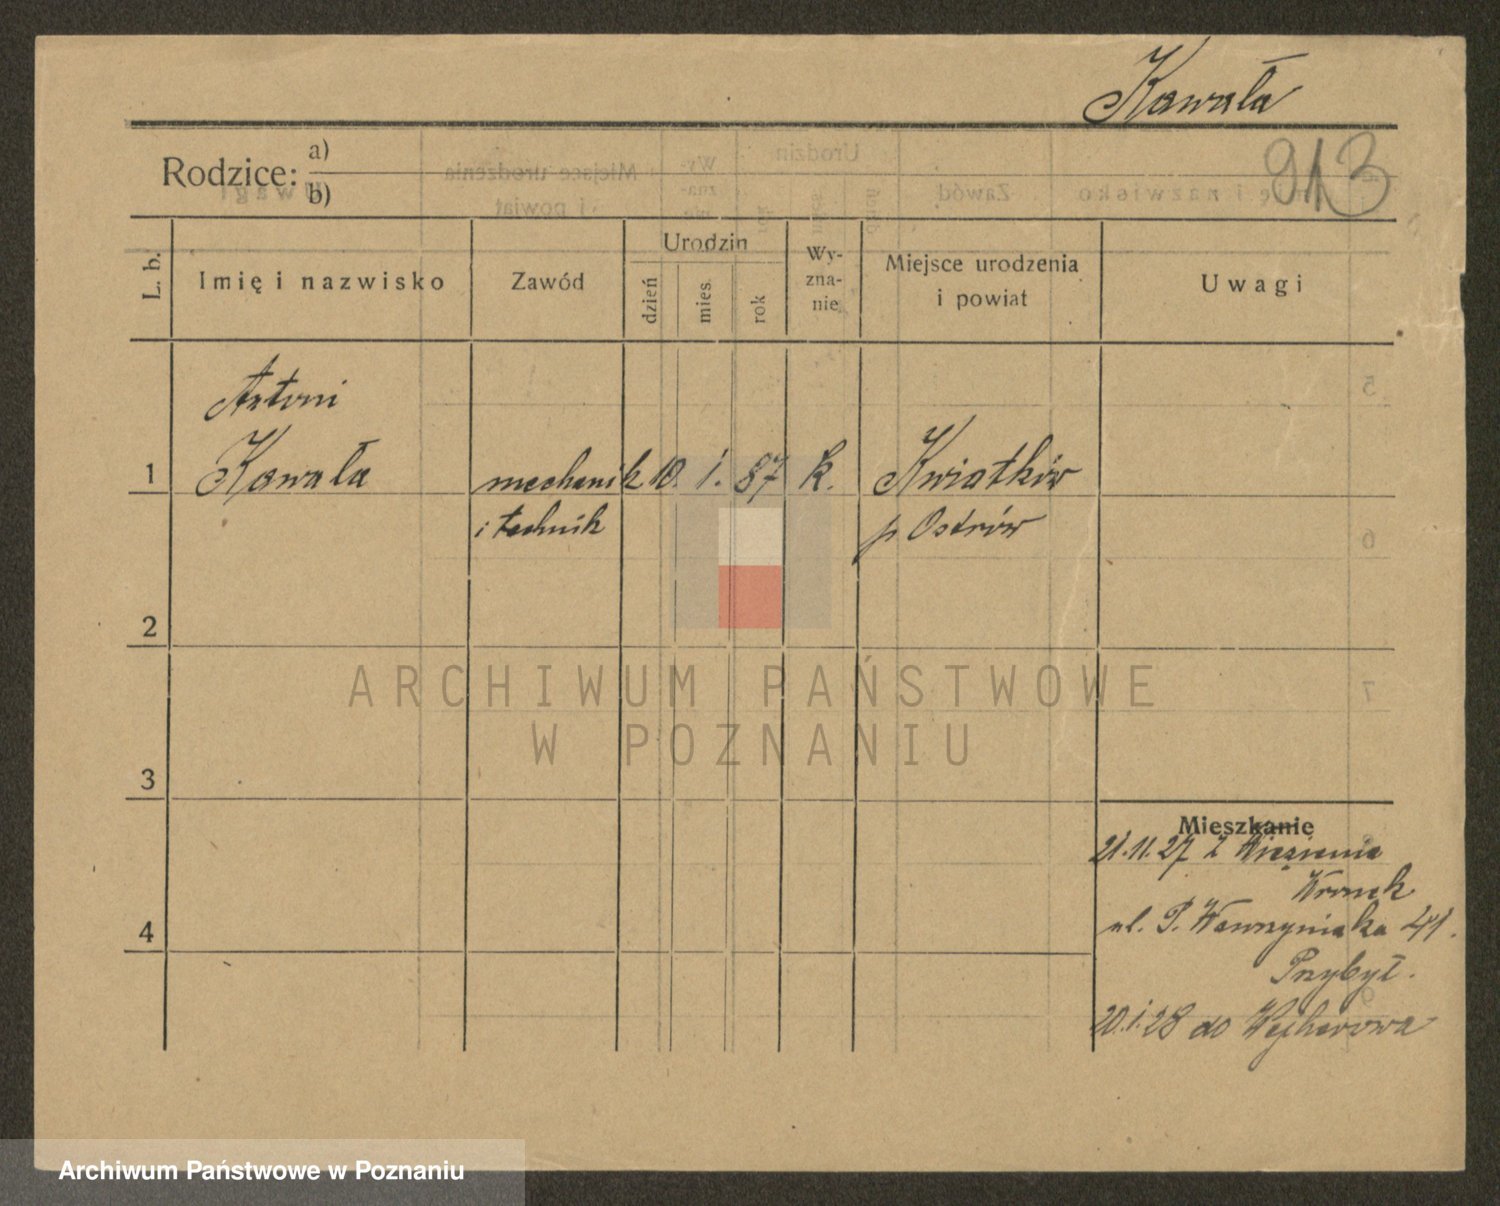 Kawała
913
Rodzice: a)
b)
L. b.
Imię i nazwisko
Zawód
Urodzin
dzień
mies.
rok
Wy-
zna-
nie
Miejsce urodzenia
i powiat
Uwagi
Antoni
1 Kawała mechanik 10. 1. 87 k. Kwiatków
i technik p Ostrów
2
3
4
Mieszkanie
21.11.27 z Więzienia
Wronek
ul. P. Wawrzyniaka 41.
Przybył.
20.1.28 do Wejherowa
ARCHIWUM PAŃSTWOWE
W POZNANIU
Archiwum Państwowe w Poznaniu